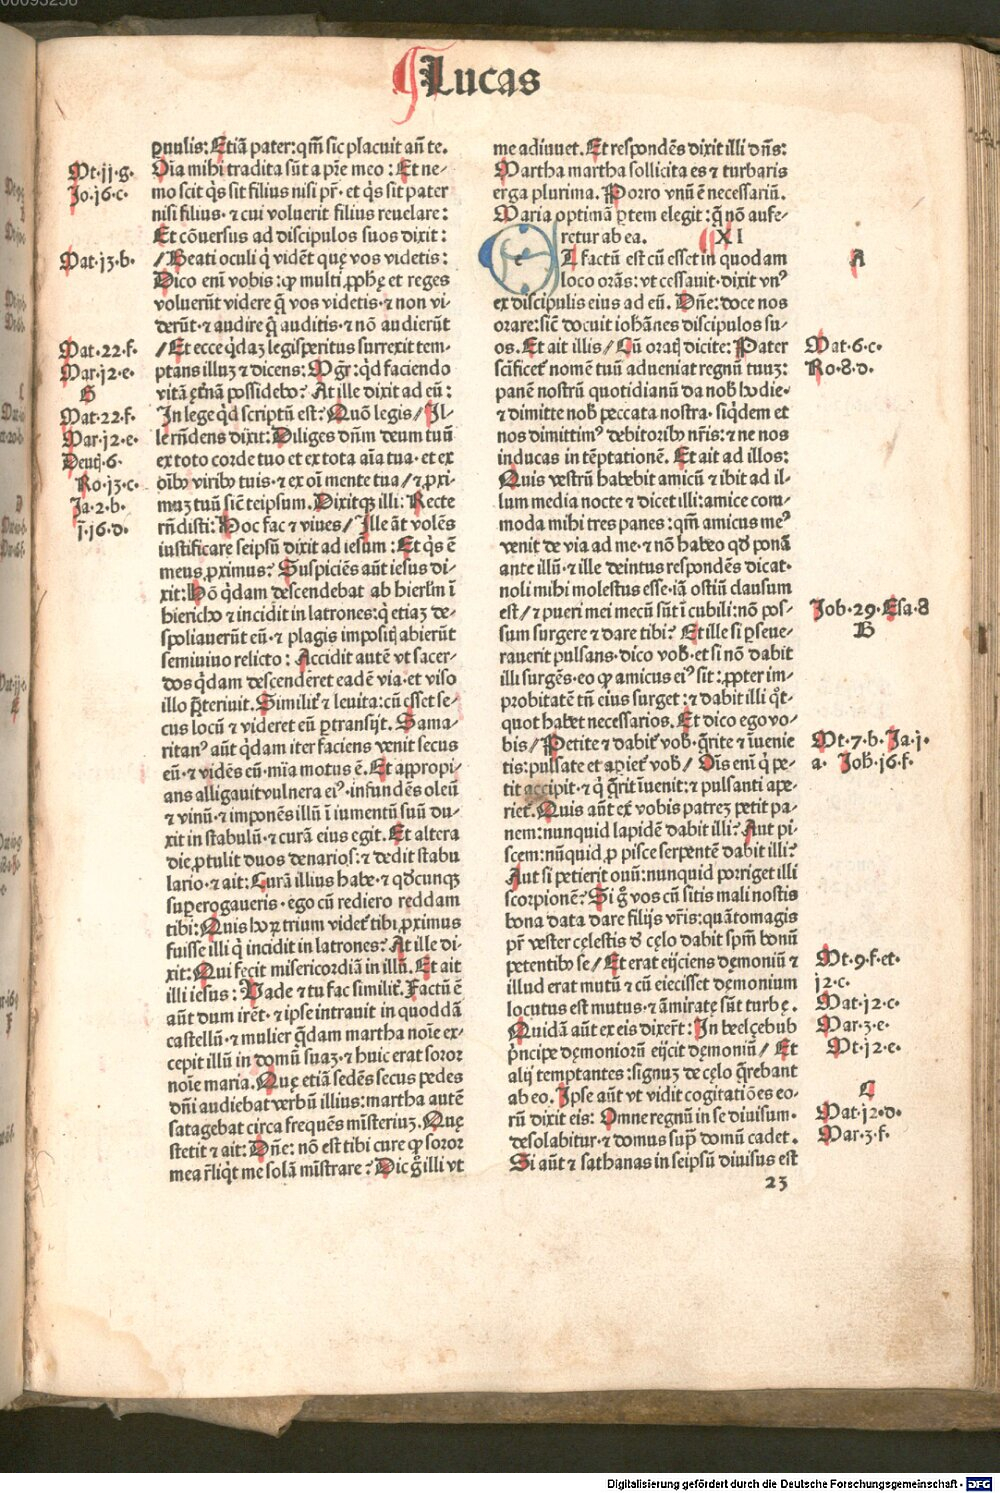 Lucas
ꝑuulis: Etiā pater: qm̄ sic placuit añ te.
Oīa mihi tradita sūt a pr̄e meo: Et ne-
mo scit q̇s sit filius nisi pr̄· et q̇s sit pater
nisi filius· ⁊ cui voluerit filius reuelare:
Et cōuersus ad discipulos suos dixit:
/Beati oculi q̇ vidēt quę vos videtis:
Dico enī vobis: qꝫ multi ꝓphę et reges
voluerūt videre q̄ vos videtis· ⁊ non vi-
derūt· ⁊ audire q̄ auditis· ⁊ nō audierūt
/Et ecce q̇daꝫ legisꝑitus surrexit tem-
ptans illuꝫ ⁊ dicens: Mgr̄: q̇d faciendo
vitā ęt̄nā possidebo? At ille dixit ad eū:
In lege q̇d scriptū est? Quō legis/ Il-
le rn̄dens dixit: Diliges dn̄m deum tuū
ex toto corde tuo et ex tota aīa tua· et ex
oībꝰ viribꝰ tuis· ⁊ ex oī mente tua/ ⁊ ꝓxi-
muꝫ tuū sic̄ teipsum. Dixitqꝫ illi: Recte
rn̄disti: Hoc fac ⁊ viues/ Ille āt volēs
iustificare seipsū dixit ad iesum: Et q̇s ē
meus ꝓximus? Suspiciēs aūt iesus di-
xit: Hō q̇dam descendebat ab hierlm̄ ī
hiericho ⁊ incidit in latrones: q̇ etiaꝫ de-
spoliauerūt eū· ⁊ plagis impositꝭ abierūt
semiuiuo relicto: Accidit autē vt sacer-
dos q̇dam descenderet eadē via· et viso
illo p̄teriuit. Similit̄ ⁊ leuita: cū esset se-
cus locū ⁊ videret eū ꝑtransijt. Sama-
ritanꝰ aūt q̇dam iter faciens venit secus
eū· ⁊ vidēs eū· mīa motus ē. Et appropi-
ans alligauit vulnera eiꝰ· infundēs oleū
⁊ vinū· ⁊ imponēs illū ī iumentū suū du-
xit in stabulū· ⁊ curā eius egit. Et altera
die ꝓtulit duos denarios: ⁊ dedit stabu
lario· ⁊ ait: Curā illius habe· ⁊ qd̄cunqꝫ
suꝑerogaueris· ego cū rediero reddam
tibi: Quis hoꝝ trium videt̄ tibi ꝓximus
fuisse illi q̇ incidit in latrones? At ille di-
xit: Qui fecit misericordiā in illū. Et ait
illi iesus: Vade ⁊ tu fac similit̄. Factū ē
aūt dum irēt· ⁊ ipse intrauit in quoddā
castellū· ⁊ mulier q̄dam martha noīe ex-
cepit illū in domū suaꝫ· ⁊ huic erat soror
noīe maria. Quę etiā sedēs secus pedes
dn̄i audiebat verbū illius: martha autē
satagebat circa frequēs misteriuꝫ. Quę
stetit ⁊ ait: Dn̄e: nō est tibi cure qꝫ soror
mea r̄liq̇t me solā mīstrare? Dic g̊ illi vt
Mt·jj·g·
Jo·j6·c·
Mat·j3·b·
Mat·22·f·
Mar·j2·e·
G
Mat·22·f·
Mar·j2·e·
Deutꝭ·6·
Ro·j3·c·
Ja·2·b·
j̄·j6·d·
me adiuuet. Et respondēs dixit illi dn̄s:
Martha martha sollicita es ⁊ turbaris
erga plurima. Porro vnū ē necessariū.
Maria optimā ꝑtem elegit: q̄ nō aufe-
retur ab ea. XI
Et factū est cū esset in quodam
loco orās: vt cessauit· dixit vnꝰ
ex discipulis eius ad eū. Dn̄e: doce nos
orare: sic̄ docuit iohānes discipulos su-
os. Et ait illis/ Cū oratꝭ dicite: Pater
sc̄ificet̄ nomē tuū adueniat regnū tuuꝫ:
panē nostrū quotidianū da nob̄ hodie·
⁊ dimitte nob̄ peccata nostra· siq̇dem et
nos dimittimꝰ debitoribꝰ nr̄is: ⁊ ne nos
inducas in tēptationē. Et ait ad illos:
Quis vestrū habebit amicū ⁊ ibit ad il-
lum media nocte ⁊ dicet illi: amice com-
moda mihi tres panes: qm̄ amicus meꝰ
venit de via ad me· ⁊ nō habeo qd̄ ponā
ante illū· ⁊ ille deintus respondēs dicat·
noli mihi molestus esse· iā ostiū clausum
est/ ⁊ pueri mei mecū sūt ī cubili: nō pos-
sum surgere ⁊ dare tibi? Et ille si ꝑseue-
rauerit pulsans· dico vob̄· et si nō dabit
illi surgēs· eo qꝫ amicus eiꝰ sit: ꝓpter im-
probitatē tn̄ eius surget: ⁊ dabit illi q̊t-
quot habet necessarios. Et dico ego vo-
bis/ Petite ⁊ dabit̄ vob̄· q̄rite ⁊ īuenie
tis: pulsate et apiet̄ vob̄/ Oīs enī q̇ pe-
tit accipit· ⁊ q̇ q̄rit īuenit: ⁊ pulsanti ape-
riet̄. Quis aūt ex vobis patreꝫ petit pa-
nem: nunquid lapidē dabit illi? Aut pi-
scem: nūquid ꝓ pisce serpentē dabit illi?
Aut si petierit ouū: nunquid porriget illi
scorpionē? Si g̊ vos cū sitis mali nostis
bona data dare filijs vr̄is: quātomagis
pr̄ vester cęlestis de cęlo dabit spm̄ bonū
petentibꝰ se/ Et erat eijciens dęmoniū ⁊
illud erat mutū ⁊ cū eiecisset dęmonium
locutus est mutus· ⁊ āmiratę sūt turbę.
Quidā aūt ex eis dixert̄: In beelçebub
p̓ncipe dęmoniorū eijcit dęmoniū/ Et
alij temptantes: signuꝫ de cęlo q̄rebant
ab eo. Ipse aūt vt vidit cogitatiōes eo-
rū dixit eis: Omne regnū in se diuisum·
desolabitur· ⁊ domus sup̄ domū cadet.
Si aūt ⁊ sathanas in seipsū diuisus est
23
A
Mat·6·c·
Ro·8·d·
Job·29·Esa·8
B
Mt·7·b·Ja·j·
a· Joh̄·j6·f·
Mt·9·f·et·
j2·c·
Mat·j2·c·
Mar·3·e·
Mt·j2·e·
C
Mat·j2·d·
Mar·3·f·
Digitalisierung gefördert durch die Deutsche Forschungsgemeinschaft - DFG